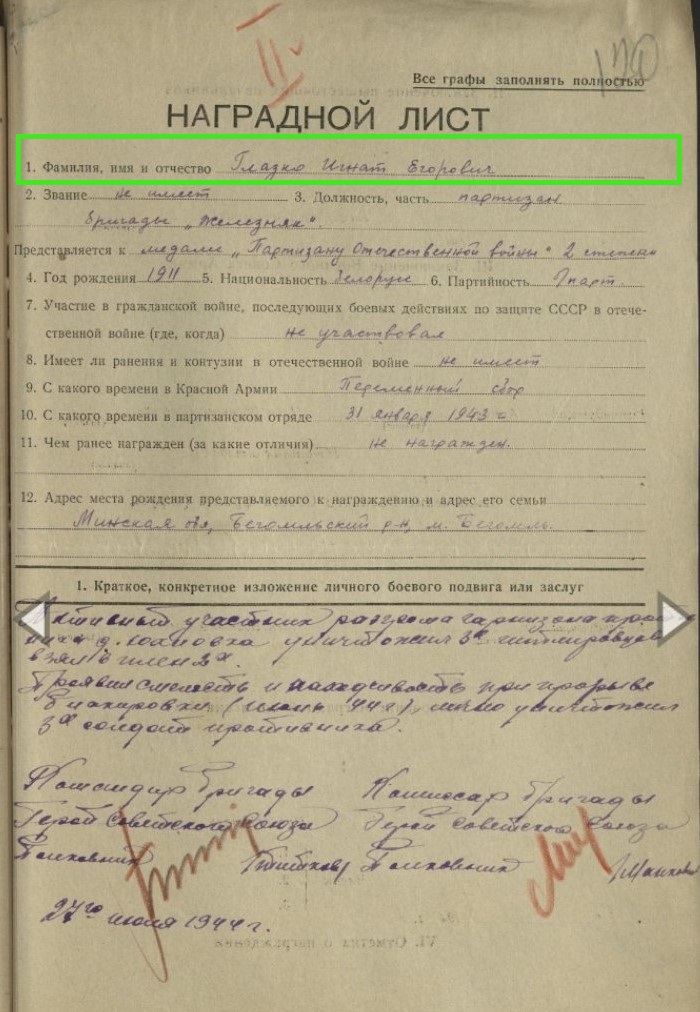 II
Все графы заполнять полностью
НАГРАДНОЙ ЛИСТ
1. Фамилия, имя и отчество Глазко Игнат Егорович
2. Звание не имеет 3. Должность, часть партизан
бригады „Железняк".
Представляется к медали „Партизану Отечественной войны" 2 степени
4. Год рождения 1911 5. Национальность белорус 6. Партийность б/парт.
7. Участие в гражданской войне, последующих боевых действиях по защите СССР в отече-
ственной войне (где, когда) не участвовал
8. Имеет ли ранения и контузии в отечественной войне не имеет
9. С какого времени в Красной Армии Переменный сбор
10. С какого времени в партизанском отряде 31 января 1943 г.
11. Чем ранее награжден (за какие отличия) не награжден.
12. Адрес места рождения представляемого к награждению и адрес его семьи
Минская обл, Бегомльский р-н, м. Бегомль.
1. Краткое, конкретное изложение личного боевого подвига или заслуг
Активный участник разгрома гарнизона против
ника д. уничтожил 3х гитлеровцев
взял в плен 2х.
Проявил смелость и находчивость при прорыве
блокировки (июнь 44 г) лично уничтожил
3х солдат противника.
Командир бригады Комиссар бригады
Герой Советского Союза Герой Советского Союза
Полковник (Титков) Полковник
27го июля 1944 г.
VI. Отметка о награждении